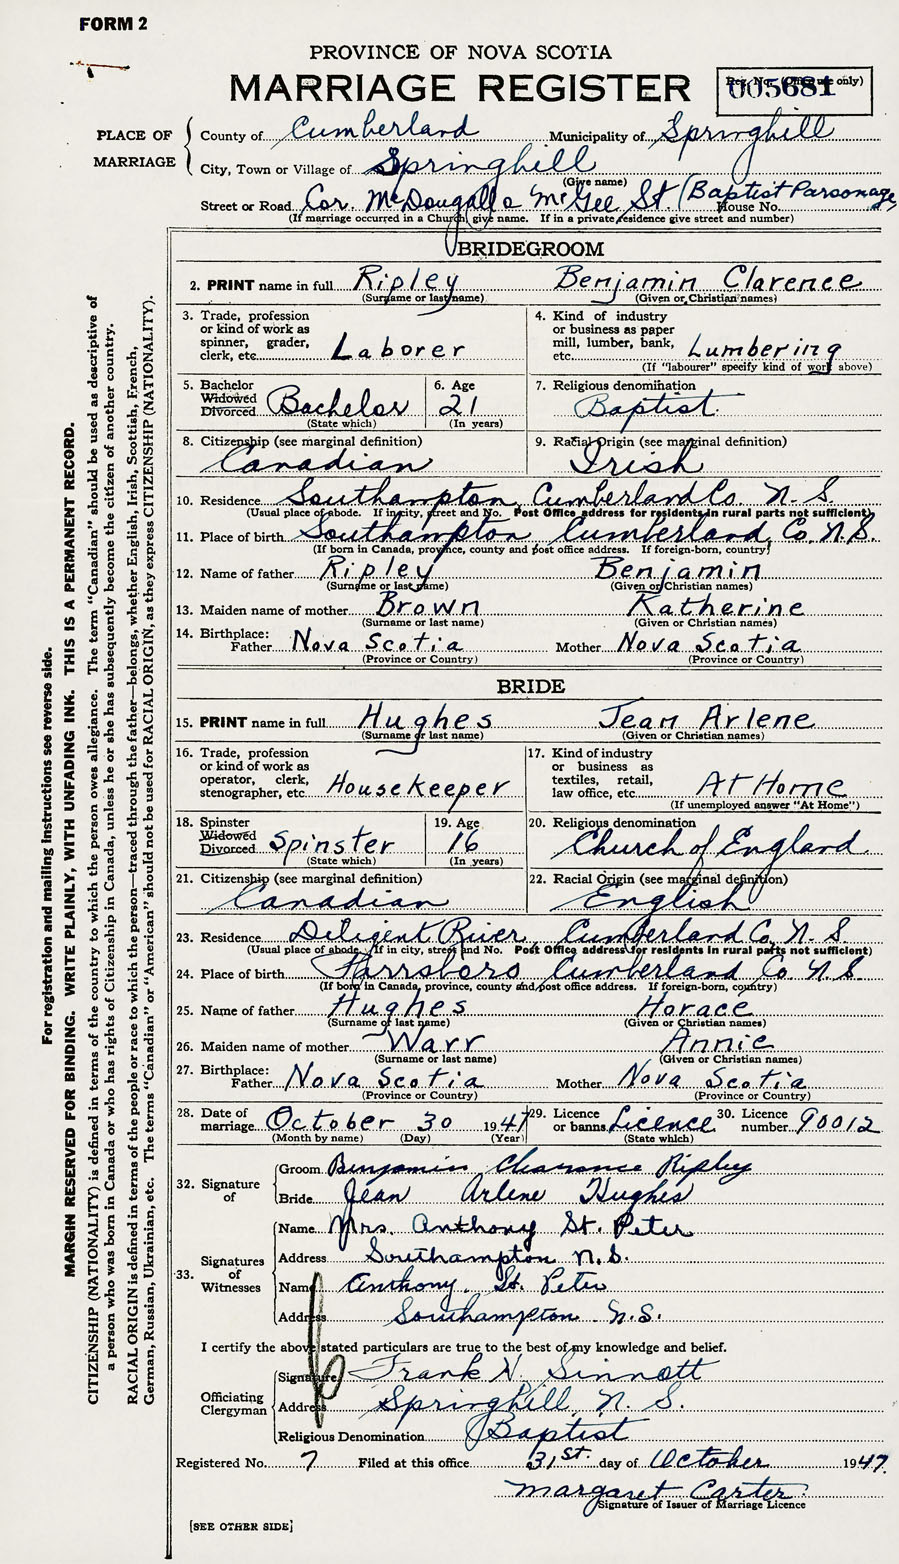 FORM 2
PROVINCE OF NOVA SCOTIA
MARRIAGE REGISTER
Reg. No. (Office use only)
005681
PLACE OF MARRIAGE
County of Cumberland Municipality of Springhill
City, Town or Village of Springhill
(Give name)
Street or Road Cor. McDougall & McGee St (Baptist Parsonage) House No.
(If marriage occurred in a Church, give name. If in a private residence give street and number)
BRIDEGROOM
2. PRINT name in full Ripley Benjamin Clarence
(Surname or last name) (Given or Christian names)
3. Trade, profession or kind of work as spinner, grader, clerk, etc. Laborer
4. Kind of industry or business as paper mill, lumber, bank, etc. Lumbering
(If "labourer" specify kind of work above)
5. Bachelor Widowed Divorced Bachelor
(State which)
6. Age 21
(In years)
7. Religious denomination
Baptist
8. Citizenship (see marginal definition)
Canadian
9. Racial Origin (see marginal definition)
Irish
10. Residence Southampton Cumberland Co. N. S.
(Usual place of abode. If in city, street and No. Post Office address for residents in rural parts not sufficient)
11. Place of birth Southampton Cumberland Co. N.S.
(If born in Canada, province, county and post office address. If foreign-born, country)
12. Name of father Ripley Benjamin
(Surname or last name) (Given or Christian names)
13. Maiden name of mother Brown Katherine
(Surname or last name) (Given or Christian names)
14. Birthplace: Father Nova Scotia Mother Nova Scotia
(Province or Country) (Province or Country)
BRIDE
15. PRINT name in full Hughes Jean Arlene
(Surname or last name) (Given or Christian names)
16. Trade, profession or kind of work as operator, clerk, stenographer, etc. Housekeeper
17. Kind of industry or business as textiles, retail, law office, etc. At Home
(If unemployed answer "At Home")
18. Spinster Widowed Divorced Spinster
(State which)
19. Age 16
(In years)
20. Religious denomination
Church of England
21. Citizenship (see marginal definition)
Canadian
22. Racial Origin (see marginal definition)
English
23. Residence Diligent River, Cumberland Co. N. S.
(Usual place of abode. If in city, street and No. Post Office address for residents in rural parts not sufficient)
24. Place of birth Parrsboro Cumberland Co N. S.
(If born in Canada, province, county and post office address. If foreign-born, country)
25. Name of father Hughes Horace
(Surname or last name) (Given or Christian names)
26. Maiden name of mother Warr Annie
(Surname or last name) (Given or Christian names)
27. Birthplace: Father Nova Scotia Mother Nova Scotia
(Province or Country) (Province or Country)
28. Date of marriage October 30 1947
(Month by name) (Day) (Year)
29. Licence or banns Licence
(State which)
30. Licence number 90012
32. Signature of
Groom Benjamin Clearance Ripley
Bride Jean Arlene Hughes
33. Signatures of Witnesses
Name Mrs. Anthony St. Peter
Address Southampton N.S.
Name Anthony St. Peter
Address Southampton N.S.
I certify the above stated particulars are true to the best of my knowledge and belief.
Officiating Clergyman
Signature Frank N. Sinnott
Address Springhill, N. S.
Religious Denomination Baptist
Registered No. 7 Filed at this office 31st. day of October 1947.
Margaret Carter
Signature of Issuer of Marriage Licence
[SEE OTHER SIDE]
For registration and mailing instructions see reverse side.
MARGIN RESERVED FOR BINDING. WRITE PLAINLY, WITH UNFADING INK. THIS IS A PERMANENT RECORD.
CITIZENSHIP (NATIONALITY) is defined in terms of the country to which the person owes allegiance. The term "Canadian" should be used as descriptive of
a person who was born in Canada or who has rights of Citizenship in Canada, unless he or she has subsequently become the citizen of another country.
RACIAL ORIGIN is defined in terms of the people or race to which the person—traced through the father—belongs, whether English, Irish, Scottish, French,
German, Russian, Ukrainian, etc. The terms "Canadian" or "American" should not be used for RACIAL ORIGIN, as they express CITIZENSHIP (NATIONALITY).